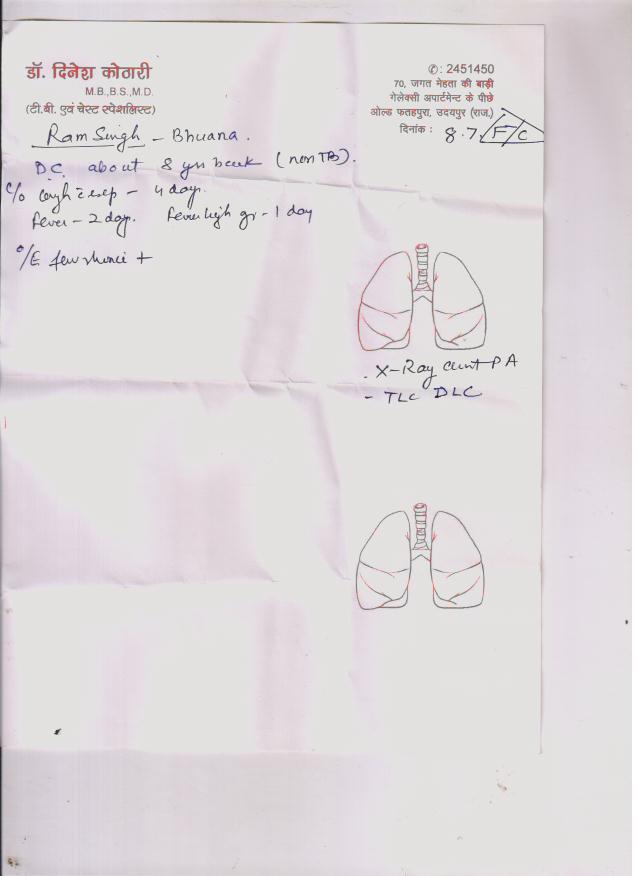 डॉ. दिनेश कोठारी
M.B.,B.S.,M.D.
(टी.बी. एवं चेस्ट स्पेशलिस्ट)
✆: 2451450
70, जगत मेहता की बाड़ी
गेलेक्सी अपार्टमेन्ट के पीछे
ओल्ड फतहपुरा, उदयपुर (राज.)
दिनांक : 8.7. F/C
Ram Singh - Bhuana.
D.C. about 8 yrs back (non TB).
C/o cough c exp - 4 days.
fever - 2 days. Fever high gr - 1 day
O/E few rhonci +
. X-Ray PA
- TLC DLC